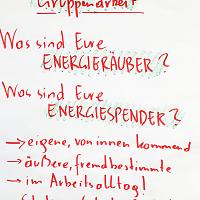 Gruppenarbeit
Was sind Eure
ENERGIERÄUBER?
Was sind Eure
ENERGIESPENDER?
→ eigene, von innen kommend
→ äußere, fremdbestimmte
→ im Arbeitsalltag!